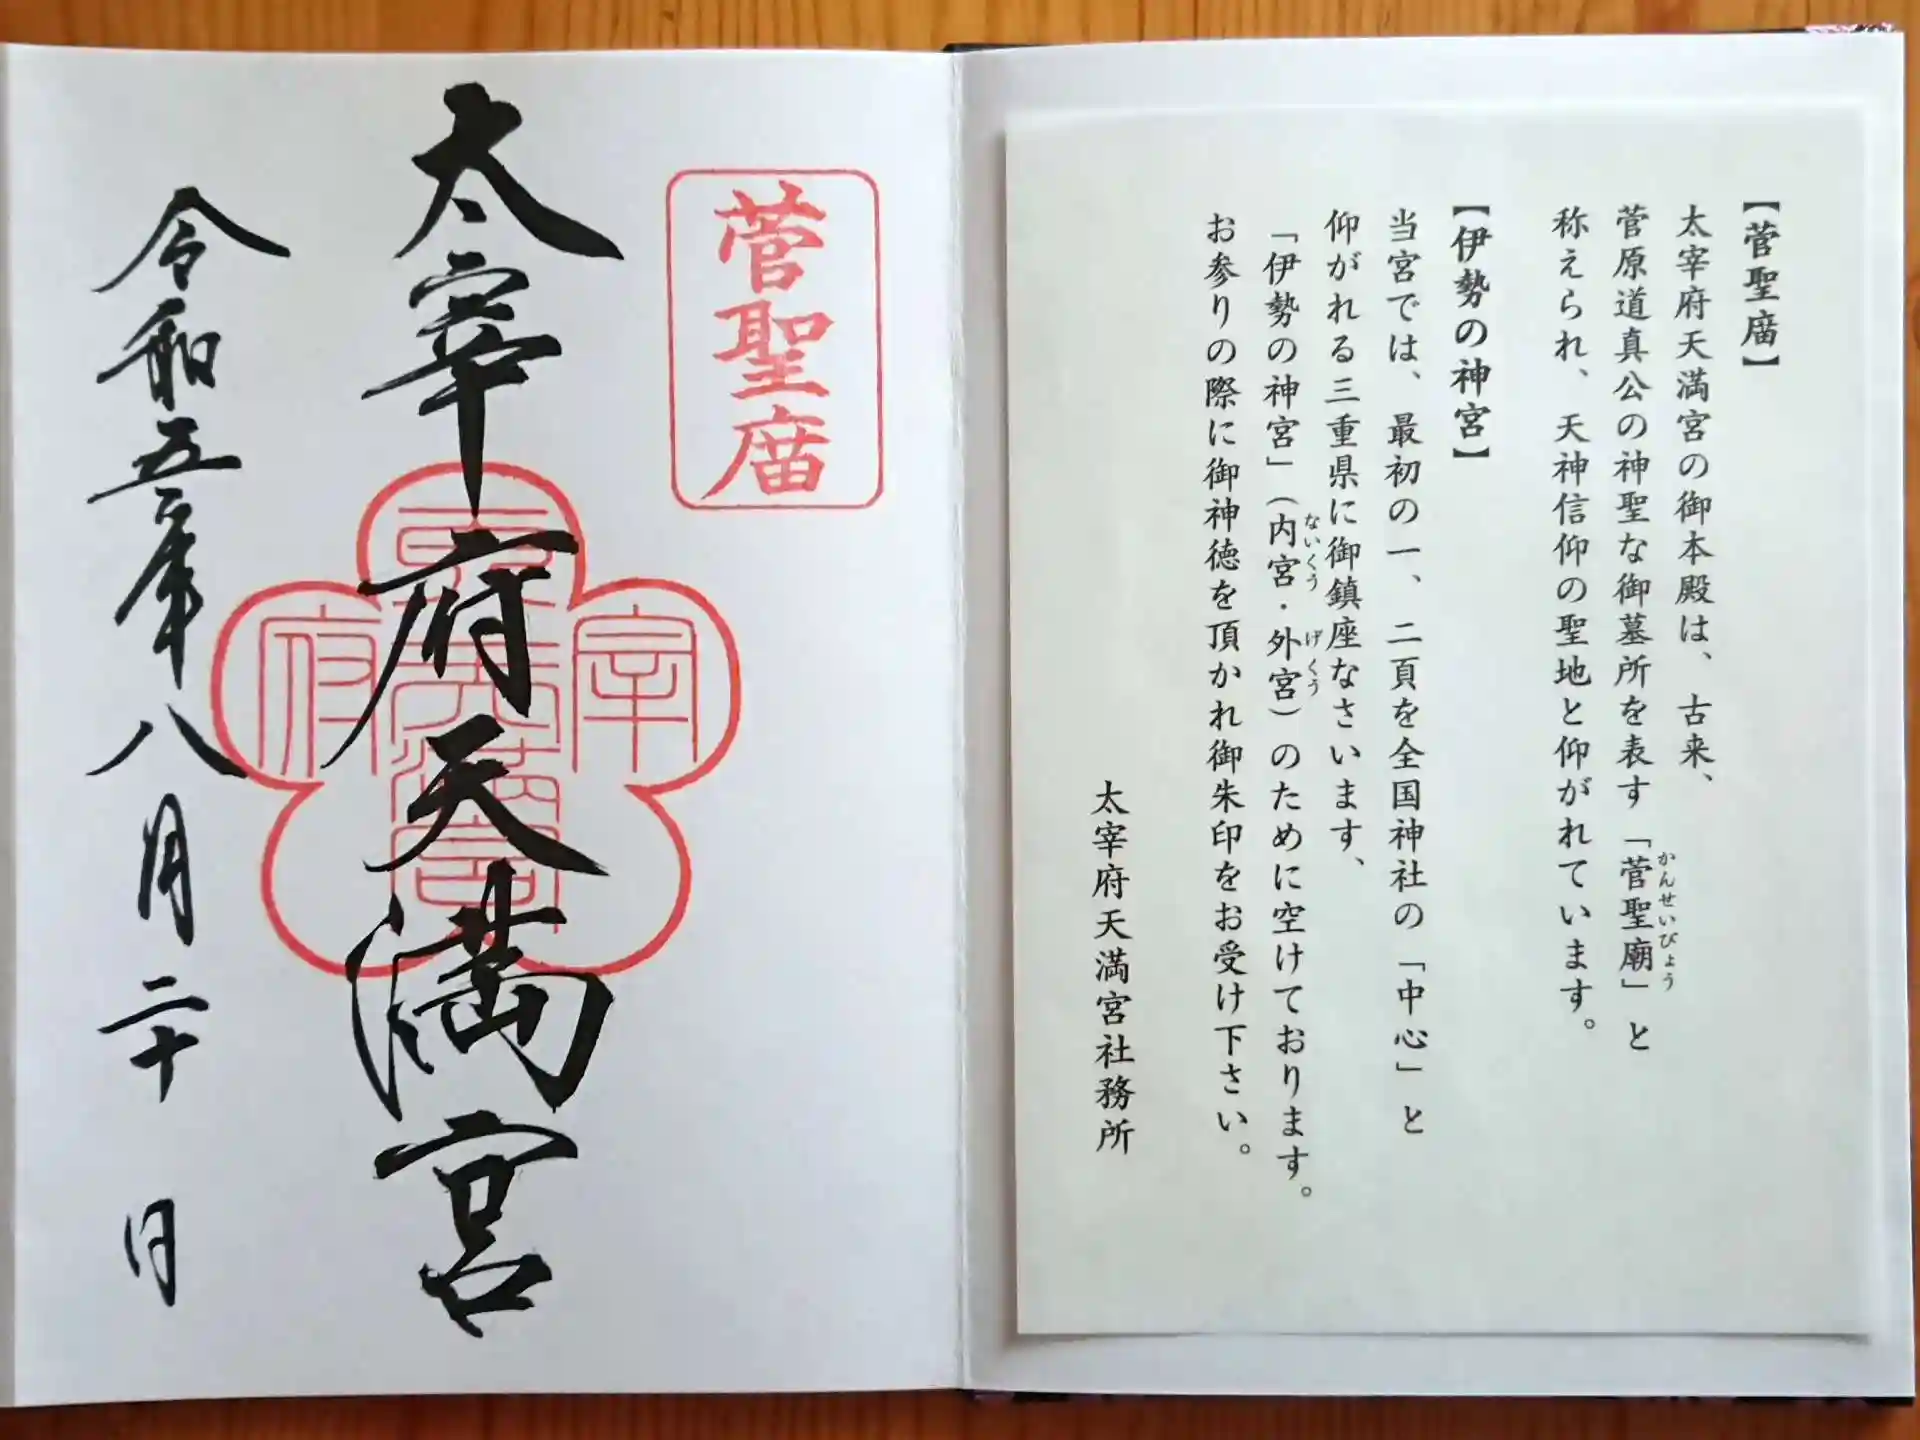 【菅聖庿】
太宰府天満宮の御本殿は、古来、
菅原道真公の神聖な御墓所を表す「菅聖廟」と
かんせいびょう
称えられ、天神信仰の聖地と仰がれています。
【伊勢の神宮】
当宮では、最初の一、二頁を全国神社の「中心」と
仰がれる三重県に御鎮座なさいます、
「伊勢の神宮」（内宮・外宮）のために空けております。
ないくう
げくう
お参りの際に御神徳を頂かれ御朱印をお受け下さい。
太宰府天満宮社務所
菅聖庿
太宰府天満宮
宰
府
令和五年八月二十日